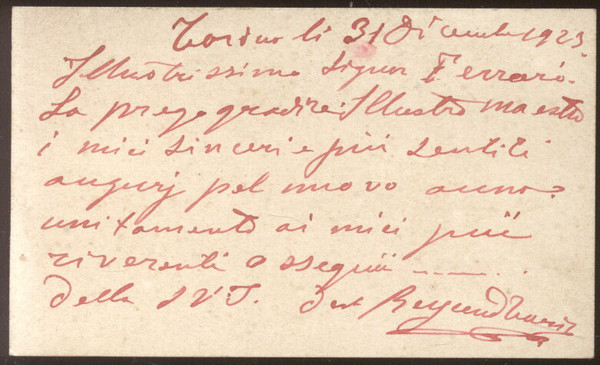 Torino li 31 Dicembre 1923
Illustrissimo Signor Ferrari.
La prego gradire Illustro maestro
i miei sinceri e più sentiti
augurj pel nuovo anno
unitamente ai miei più
riverenti ossequii
della S.V.I.